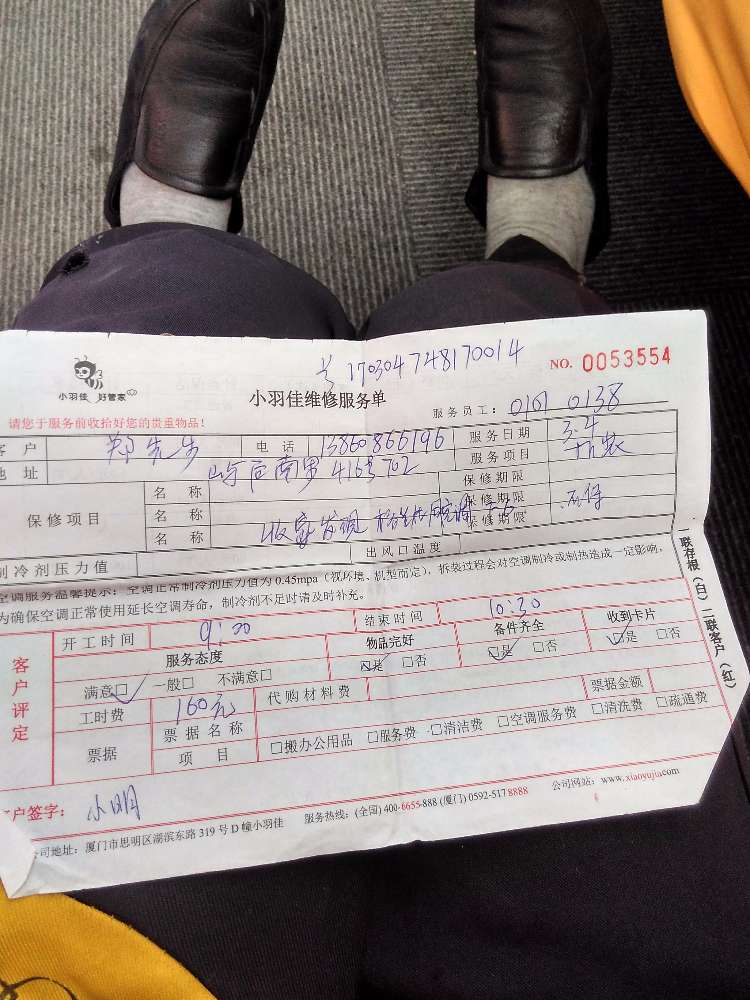 号 170304748170014
NO. 0053554
小羽佳 好管家
小羽佳维修服务单
服务员工: 0101 0138
请您于服务前收拾好您的贵重物品!
客户 郑先生 电话 13860866196 服务日期 3.4
地址 屿后南里 416号702 服务项目 拆装
保修项目 名称 保修期限
名称 保修期限 不保
名称 保修期限
制冷剂压力值 出风口温度
空调服务温馨提示:空调正常制冷剂压力值为 0.45mpa(视环境、机型而定)、拆装过程会对空调制冷或制热造成一定影响,
为确保空调正常使用延长空调寿命,制冷剂不足时请及时补充。
客户评定
开工时间 9:00 结束时间 10:30
服务态度 物品完好 备件齐全 收到卡片
满意□ 一般□ 不满意□ □是 □否 □是 □否 □是 □否
工时费 160元 代购材料费
票据 票据名称 票据金额
项目 □搬办公用品 □服务费 □清洁费 □空调服务费 □清洗费 □疏通费
客户签字: 小明
公司地址:厦门市思明区湖滨东路 319 号 D 幢小羽佳 服务热线:(全国) 400-6655-888 (厦门) 0592-517 8888 公司网站:www.xiaoyujia.com
一联存根(白)二联客户(红)